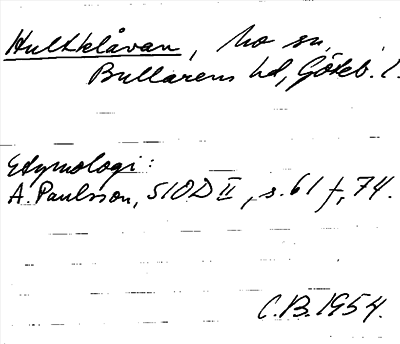 Hultklåvan, Mo sn,
Bullarens hd, Göteb. l.
Etymologi:
A. Paulsson, SIOD II, s. 61 f, 74.
C.B. 1954.